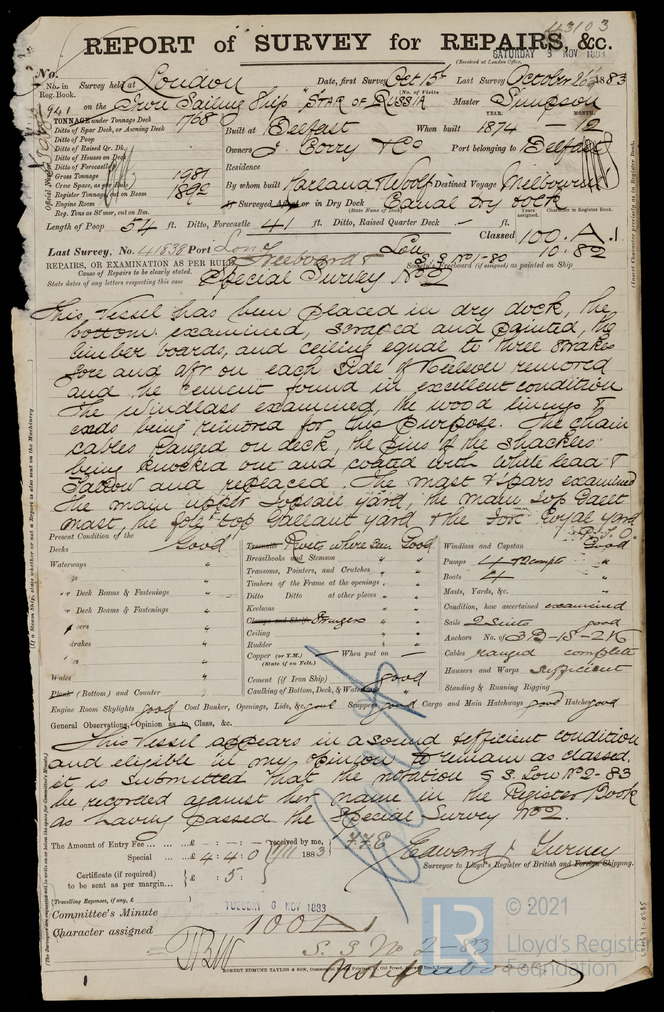 43103
REPORT of SURVEY for REPAIRS, &c.
SATURDAY 3 NOV 1883
(Received at London Office,
No.
No. in Reg. Book.
Survey held at London Date, first Survey Oct 15th Last Survey October 26th 1883
(No. of Visits
941 on the Iron Sailing Ship "STAR OF RUSSIA Master Simpson
TONNAGE under Tonnage Deck 1768
Ditto of Spar Deck, or Awning Deck
Ditto of Poop
Ditto of Raised Qr. Dk.
Ditto of Houses on Deck
Ditto of Forecastle
Gross Tonnage 1981
Crew Space, as per Rule
Register Tonnage cut on Beam 1892
Engine Room
Reg. Tons as St'mer, cut on Bm.
YEAR. MONTH.
Built at Belfast When built 1874 12
Owners J. Corry & Co Port belonging to Belfast
Residence
By whom built Harland & Wolf Destined Voyage Melbourne
Surveyed Afloat or in Dry Dock Canal Dry Dock
(State Name of Dock)
Length of Poop 54 ft. Ditto, Forecastle 41 ft. Ditto, Raised Quarter Deck - ft.
Classed 100.A.1
Last Survey, No. 41838 Port Lon
Lon 10.82
S.S. No 1-80
REPAIRS, OR EXAMINATION AS PER RULE, Freeboard &
Cause of Repairs to be clearly stated.
State dates of any letters respecting this case
Special Survey No 2
This Vessel has been placed in dry dock, the
bottom examined, scraped and painted, the
limber boards, and ceiling equal to three strakes
fore and aft on each side of Keelson removed
and the cement found in excellent condition
The windlass examined, the wood linings &
ends being removed for this purpose. The chain
cables ranged on deck, the pins of the shackles
being knocked out and coated with white lead &
Tallow and replaced. The mast & spars examined
the main upper Topsail yard, the main top Gallt
mast, the fore top Gallant yard & the Fore Royal yard
P.T.O.
Present Condition of the
Decks Good
Waterways "
er Deck Beams & Fastenings "
er Deck Beams & Fastenings "
Wales "
Plank (Bottom) and Counter
Treenails Rivets where seen Good
Breasthooks and Stemson " "
Transoms, Pointers, and Crutches " "
Timbers of the Frame at the openings " "
Ditto Ditto at other places " "
Keelsons " "
Clamps and Shelf Stringers " "
Ceiling " "
Rudder " "
Copper (or Y.M.) — When put on —
(State if on Felt.)
Cement (if Iron Ship) Good
Caulking of Bottom, Deck, & Waterways "
Windlass and Capstan Good
Pumps 4 "
Boats 4 "
Masts, Yards, &c. "
Condition, how ascertained examined
Sails 2 Suits good
Anchors No. of 3B-1S-2K
Cables ranged complete
Hawsers and Warps sufficient
Standing & Running Rigging
Engine Room Skylights good Coal Bunker, Openings, Lids, &c. good Scuppers good Cargo and Main Hatchways good Hatches good
General Observations, Opinion as to Class, &c.
This Vessel appears in a sound & efficient condition
and eligible in my opinion to remain as classed.
it is submitted that the notation S.S. Lon No 2-83
be recorded against her name in the Register Book
as having passed the Special Survey No 2.
The Amount of Entry Fee ... ... £ : - : -
Special ... .. £ 4 : 4 : 0
received by me,
1883
Certificate (if required) to be sent as per margin... £ : 5 :
(Travelling Expenses, if any, £ )
Surveyor to Lloyd's Register of British and Foreign Shipping.
Committee's Minute TUESDAY 6 NOV 1883
Character assigned 100A1
S.S No 2-83
ROBERT EDMUND TAYLOR & SON,
LR
© 2021
Lloyd's Register
Foundation